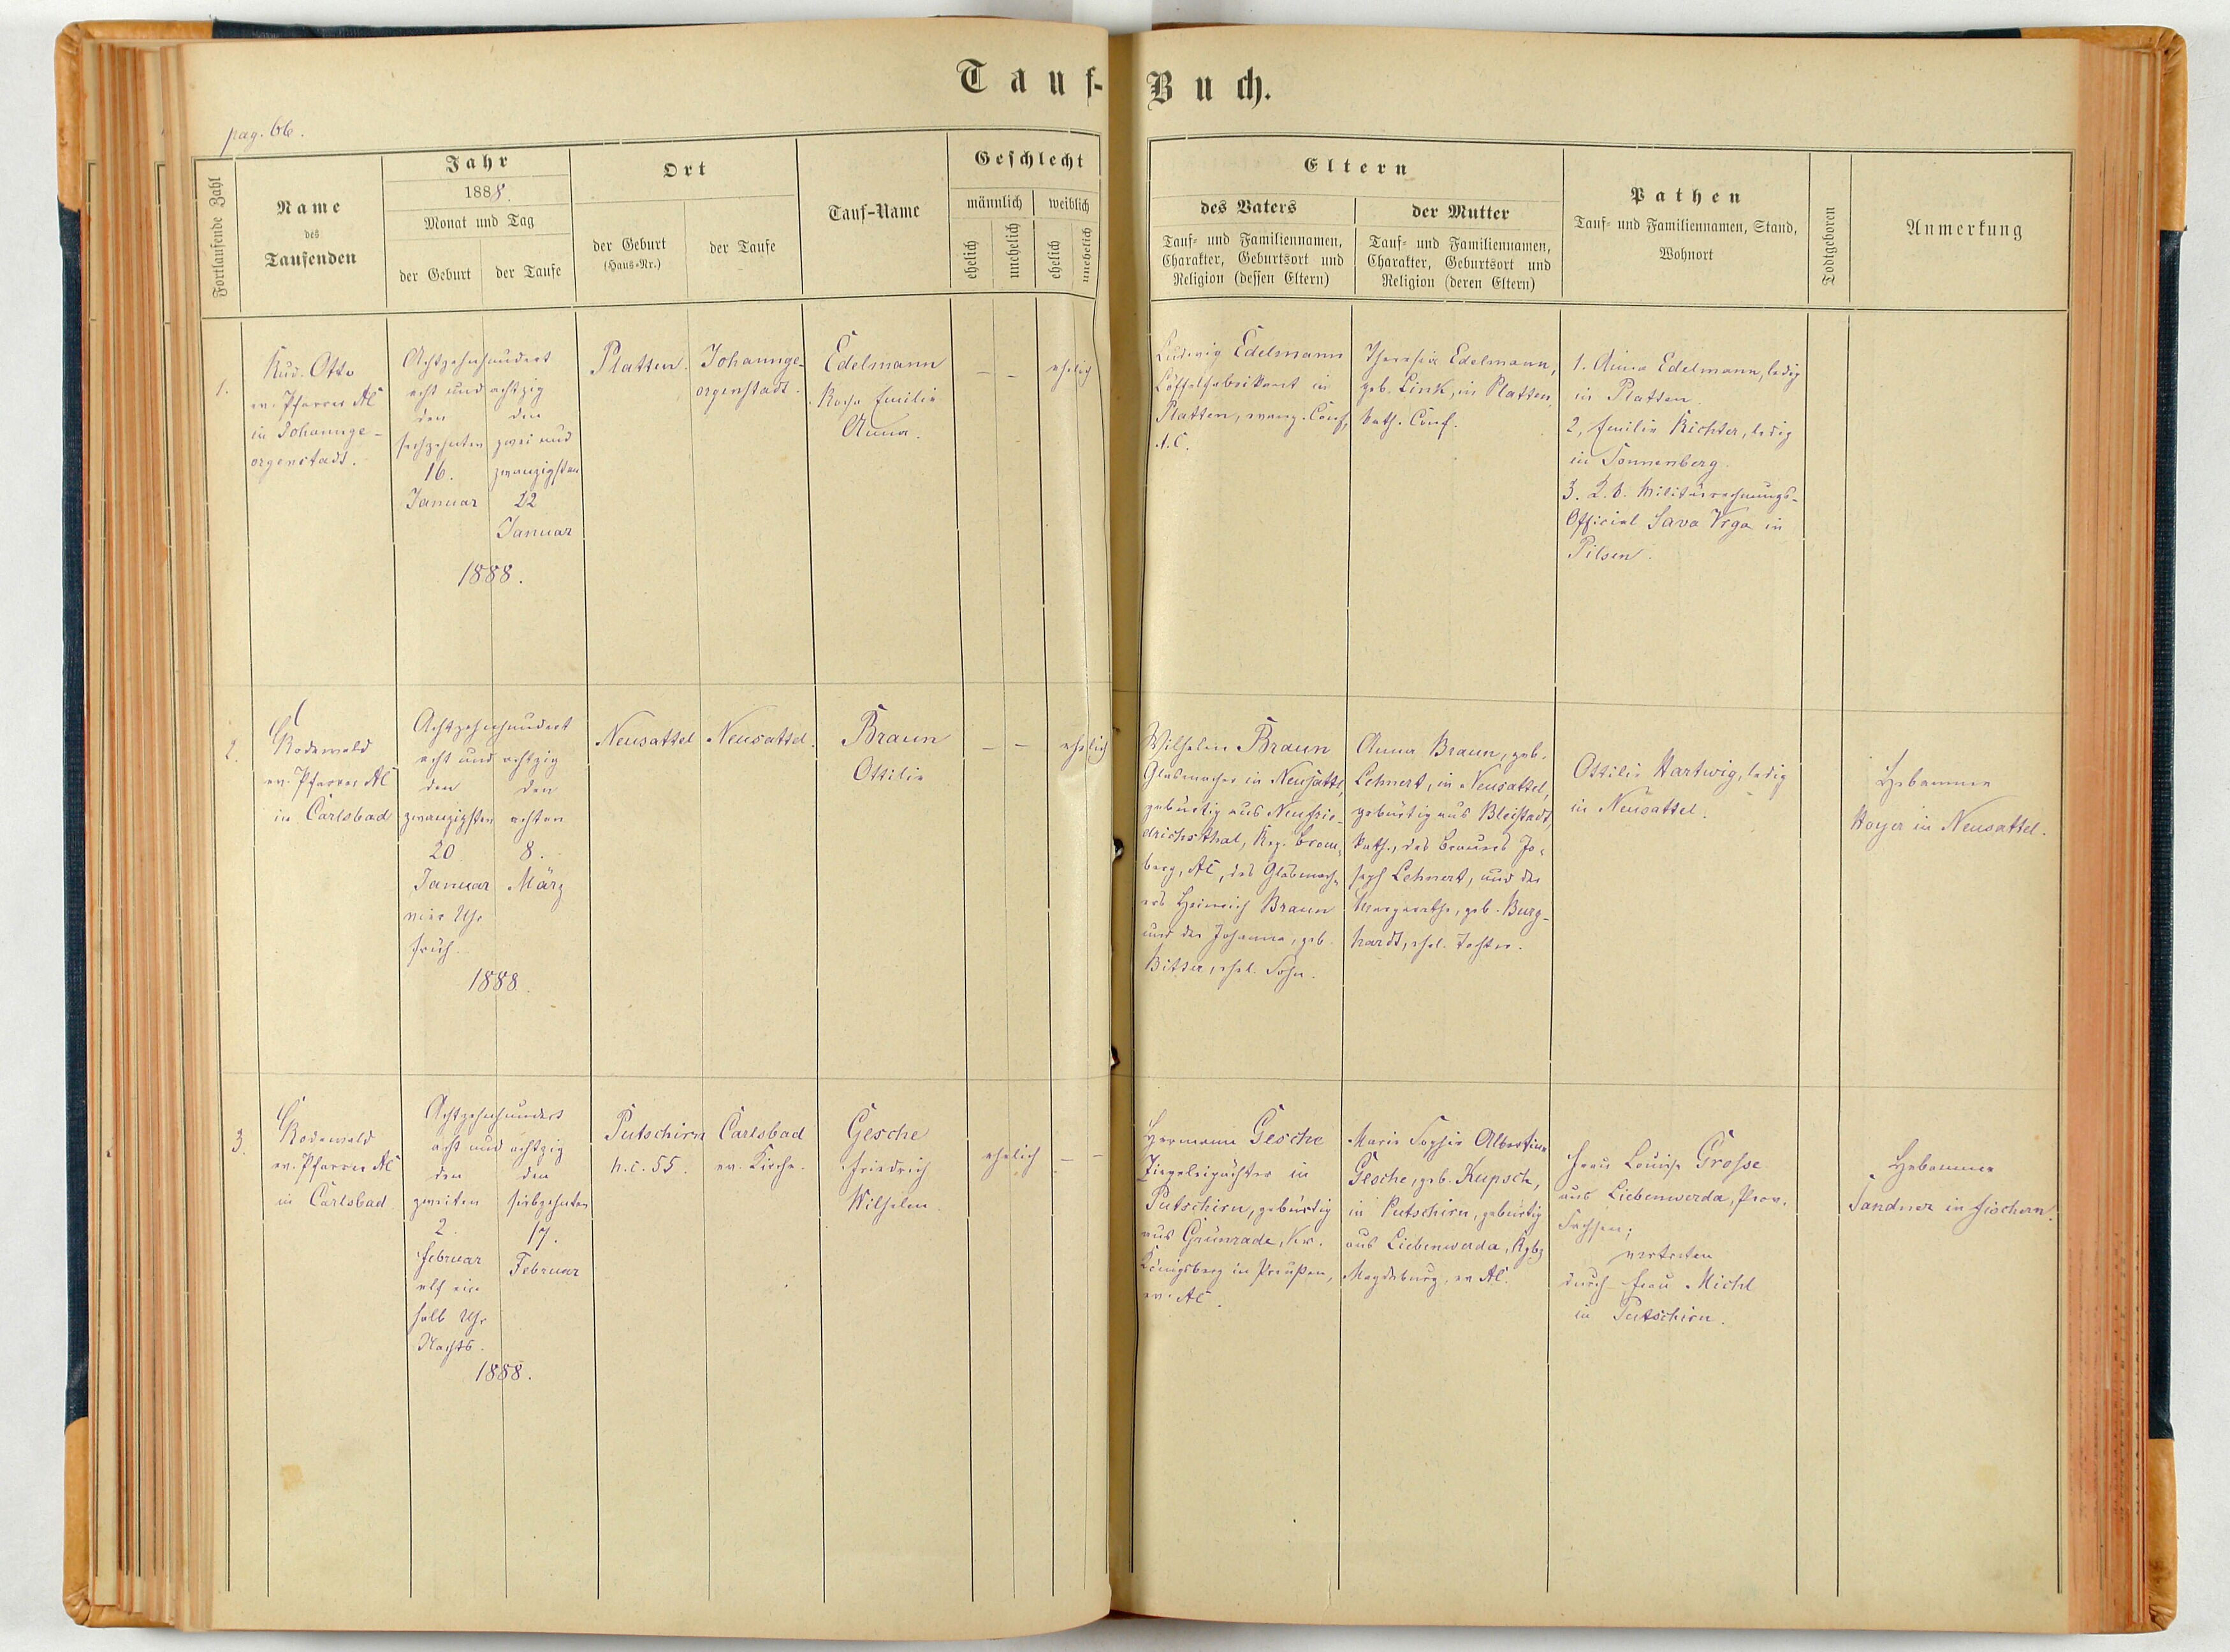 Tauf-Buch.
pag. 66.
Fortlaufende Zahl
Name
des
Taufenden
Jahr
1888.
Monat und Tag
der Geburt
der Taufe
Ort
der Geburt
(Haus-Nr.)
der Taufe
Tauf-Name
Geschlecht
männlich
weiblich
ehelich
unehelich
ehelich
unehelich
Eltern
des Vaters
Tauf- und Familiennamen,
Charakter, Geburtsort und
Religion (dessen Eltern)
der Mutter
Tauf- und Familiennamen,
Charakter, Geburtsort und
Religion (deren Eltern)
Pathen
Tauf- und Familiennamen, Stand,
Wohnort
Todtgeboren
Anmerkung
1.
Rud. Otto
ev. Pfarrer AC
in Johannge-
orgenstadt.
Achtzehnhundert
acht und achtzig
den
sechzehnten
16.
Januar
den
zwei und
zwanzigsten
22
Januar
1888.
Platten.
Johannge-
orgenstadt.
Edelmann
Rosa Emilie
Anna.
– – ehelich
Ludwig Edelmann
Löffelfabrikant in
Platten, evang. Conf,
A.C.
Theresia Edelmann,
geb. Link, in Platten,
kath. Conf.
1. Anna Edelmann, ledig
in Platten.
2, Emilie Richter, ledig
in Sonnenberg.
3. K.k. Militärrechnungs-
Official Sava Vrga in
Pilsen.
2.
Rodewald
ev. Pfarrer AC
in Carlsbad
Achtzehnhundert
acht und achtzig
den
zwanzigsten
20.
Januar
vier Uhr
früh.
den
achten
8.
März
1888.
Neusattel
Neusattel.
Braun
Ottilie
– – ehelich
Wilhelm Braun
Glasmacher in Neusattl,
gebürtig aus Neufrie-
drichsthal, Reg. Brom-
berg, AC, des Glasmach-
ers Heinrich Braun
und der Johanna, geb.
Bitter, ehel. Sohn.
Anna Braun, geb.
Lehnert, in Neusattel,
gebürtig aus Bleistadt,
kath., des Brauers Jo-
seph Lehnert, und der
Margarethe, geb. Burg-
hardt, ehel. Tochter.
Ottilie Hartwig, ledig
in Neusattel.
Hebamme
Hoyer in Neusattel.
3.
Rodewald
ev. Pfarrer AC
in Carlsbad
Achtzehnhundert
acht und achtzig
den
zweiten
2.
Februar
elf ein
halb Uhr
Nachts.
den
siebzehnten
17.
Februar
1888.
Putschirn
h.c. 55.
Carlsbad
ev. Kirche.
Gesche
Friedrich
Wilhelm.
ehelich – –
Hermann Gesche
Ziegeleipächter in
Putschirn, gebürtig
aus Grünrade, Kr.
Königsberg in Preußen,
ev. AC.
Marie Sophie Albertine
Gesche, geb. Kupsch,
in Putschirn, gebürtig
aus Liebenwerda, Rgbz
Magdeburg, ev AC.
Frau Louise Grosse
aus Liebenwerda, Prov.
Sachsen;
vertreten
durch Frau Michl
in Putschirn.
Hebamme
Sandner in Fischern.